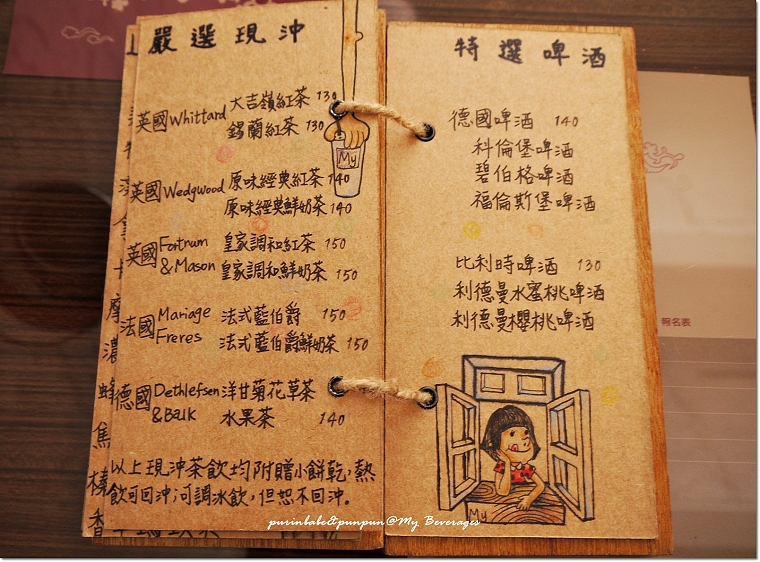 嚴選現沖
英國 Whittard 大吉嶺紅茶 130
錫蘭紅茶 130
英國 Wedgwood 原味經典紅茶 140
原味經典鮮奶茶 140
英國 Fortnum & Mason 皇家調和紅茶 150
皇家調和鮮奶茶 150
法國 Mariage Freres 法式藍伯爵 150
法式藍伯爵鮮奶茶 150
德國 Dethlefsen & Balk 洋甘菊花草茶
水果茶 140
以上現沖茶飲均附贈小餅乾,熱
飲可回沖;可調冰飲,但恕不回沖。
My
特選啤酒
德國啤酒 140
科倫堡啤酒
碧伯格啤酒
福倫斯堡啤酒
比利時啤酒 130
利德曼水蜜桃啤酒
利德曼櫻桃啤酒
My
報名表
摩
濃
蜂
焦
橈
香
purinbabe&punpun@My Beverages